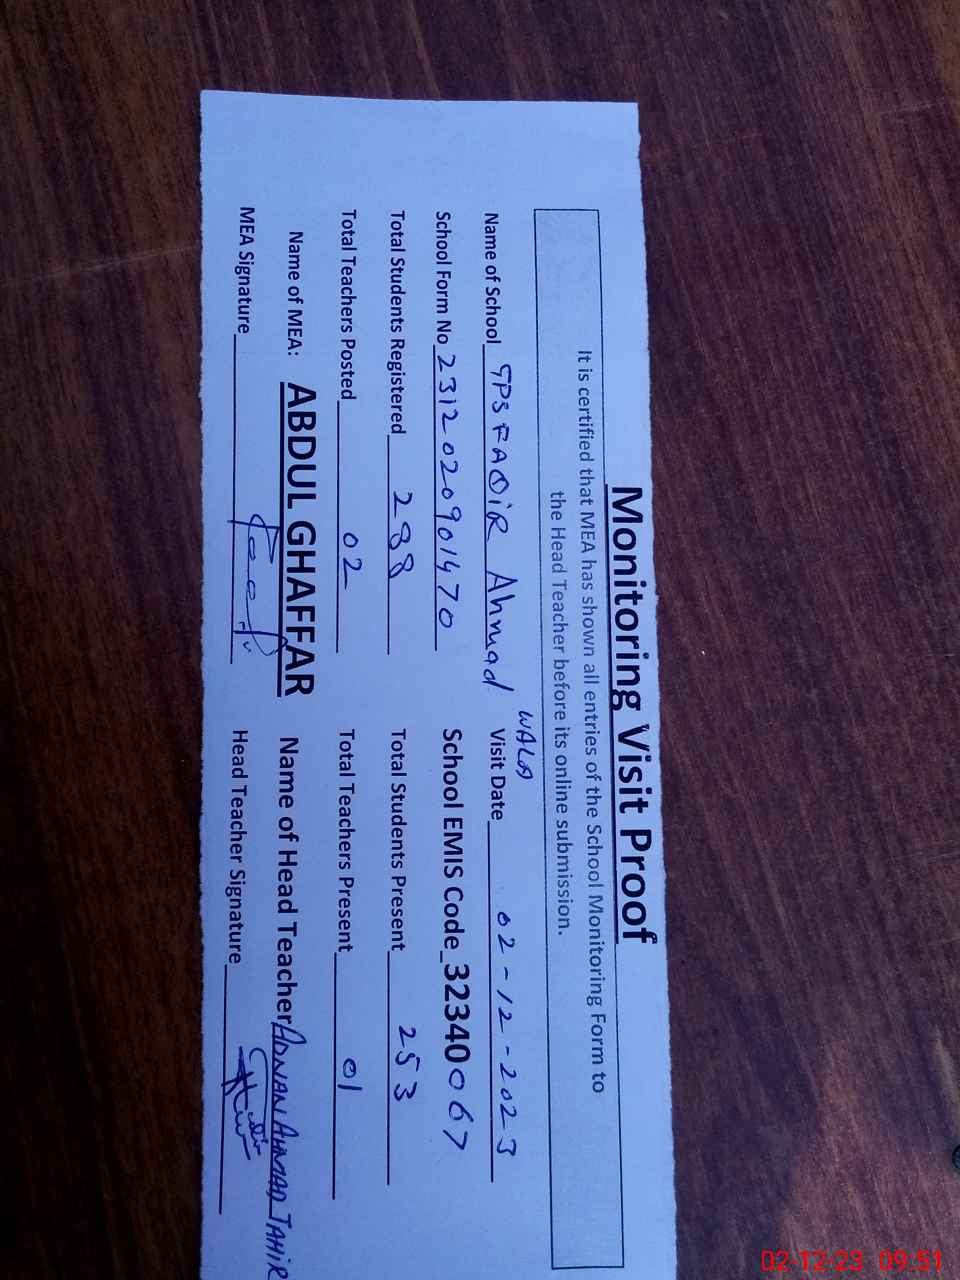 Monitoring Visit Proof
It is certified that MEA has shown all entries of the School Monitoring Form to
the Head Teacher before its online submission.
Name of School GPS FAQiR Ahmad WALA Visit Date 02-12-2023
School Form No 2312020901470 School EMIS Code 32340067
Total Students Registered 288 Total Students Present 253
Total Teachers Posted 02 Total Teachers Present 01
Name of MEA: ABDUL GHAFFAR Name of Head Teacher ADNAN AHMAD TAHIR
MEA Signature Head Teacher Signature
02-12-23 09:51